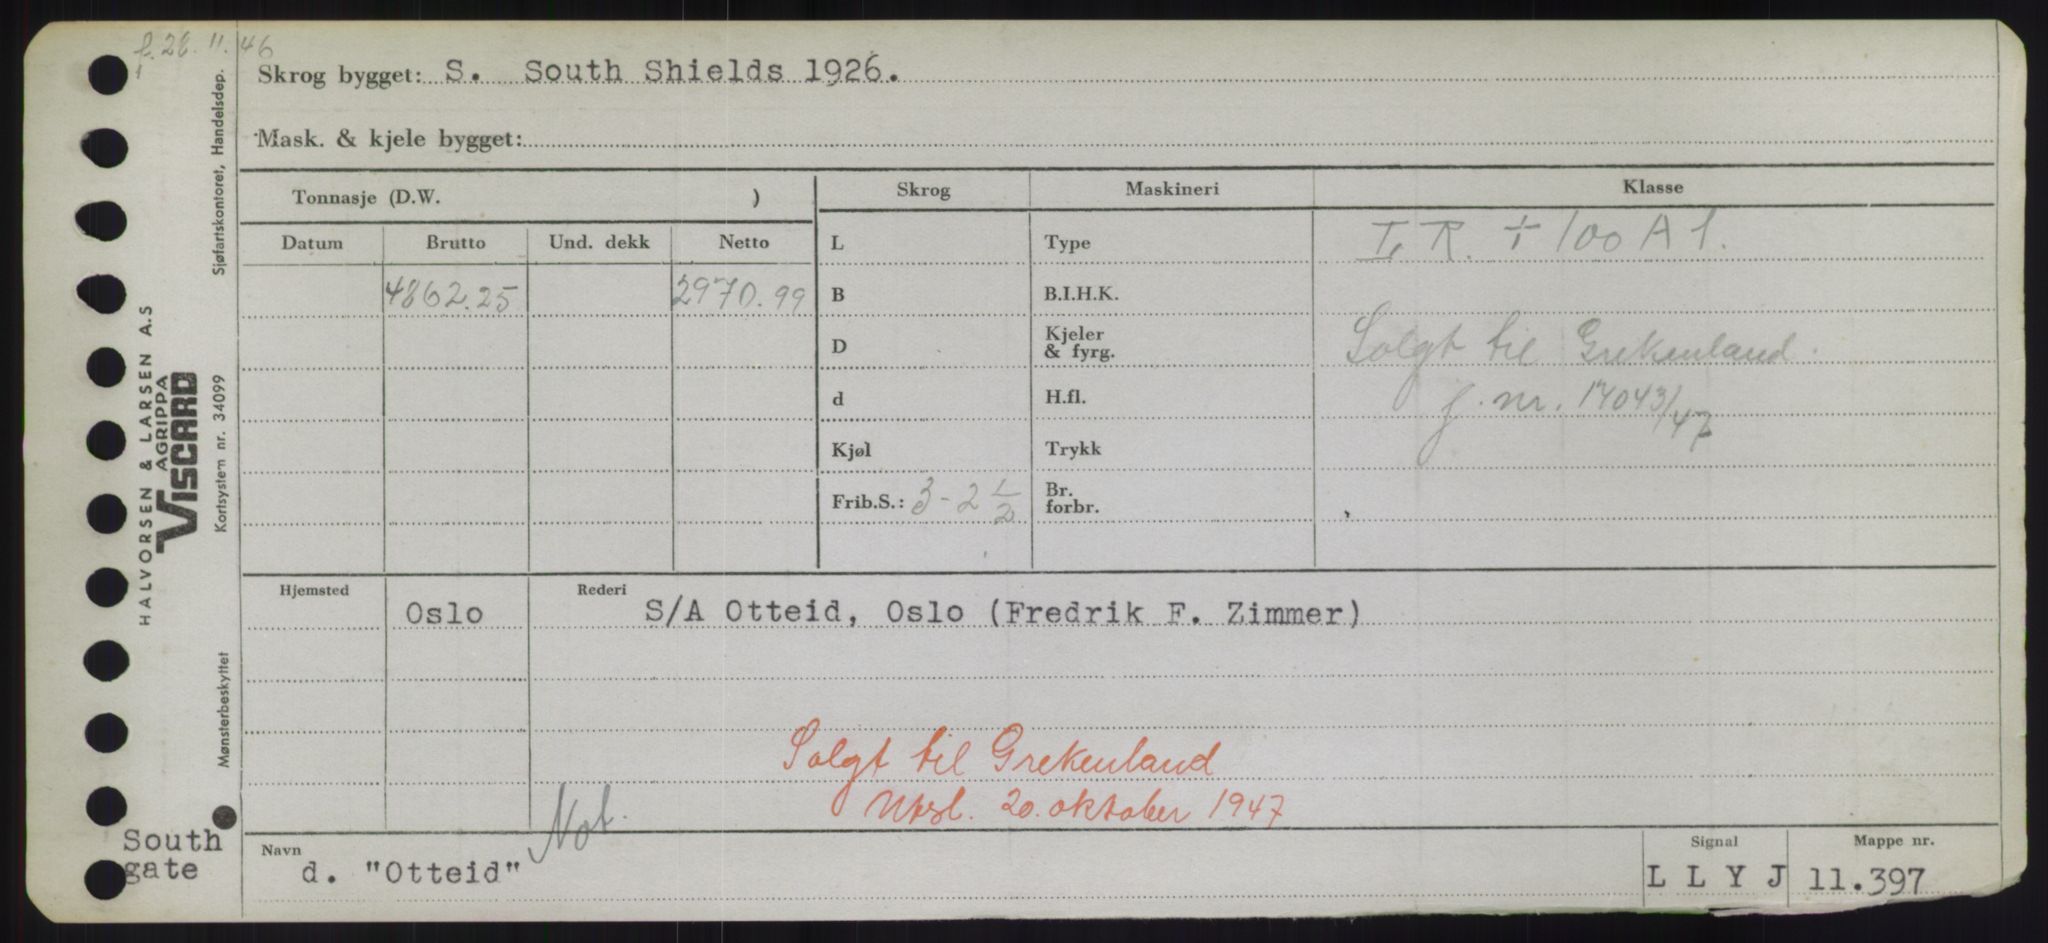 f. 26. 11. 46
Skrog bygget: S. South Shields 1926.
Mask. & kjele bygget:
Tonnasje (D.W. )
Skrog Maskineri Klasse
Datum Brutto Und. dekk Netto
L Type L R. + 100 A 1.
4862.25 2970.99 B B.I.H.K.
D Kjeler & fyrg. Solgt til Grekenland.
d H.fl. j. nr. 17043/47
Kjøl Trykk
Frib.S.: 3 - 2 1/2 Br. forbr.
Hjemsted Rederi
Oslo S/A Otteid, Oslo (Fredrik F. Zimmer)
Solgt til Grekenland
Utsl. 20. oktober 1947
Not.
South
gate
Navn Signal Mappe nr.
d. "Otteid" L L Y J 11.397
HALVORSEN & LARSEN A.S
AGRIPPA
VISCARD
Mønsterbeskyttet Kortsystem nr. 34099 Sjøfartskontoret, Handelsdep.